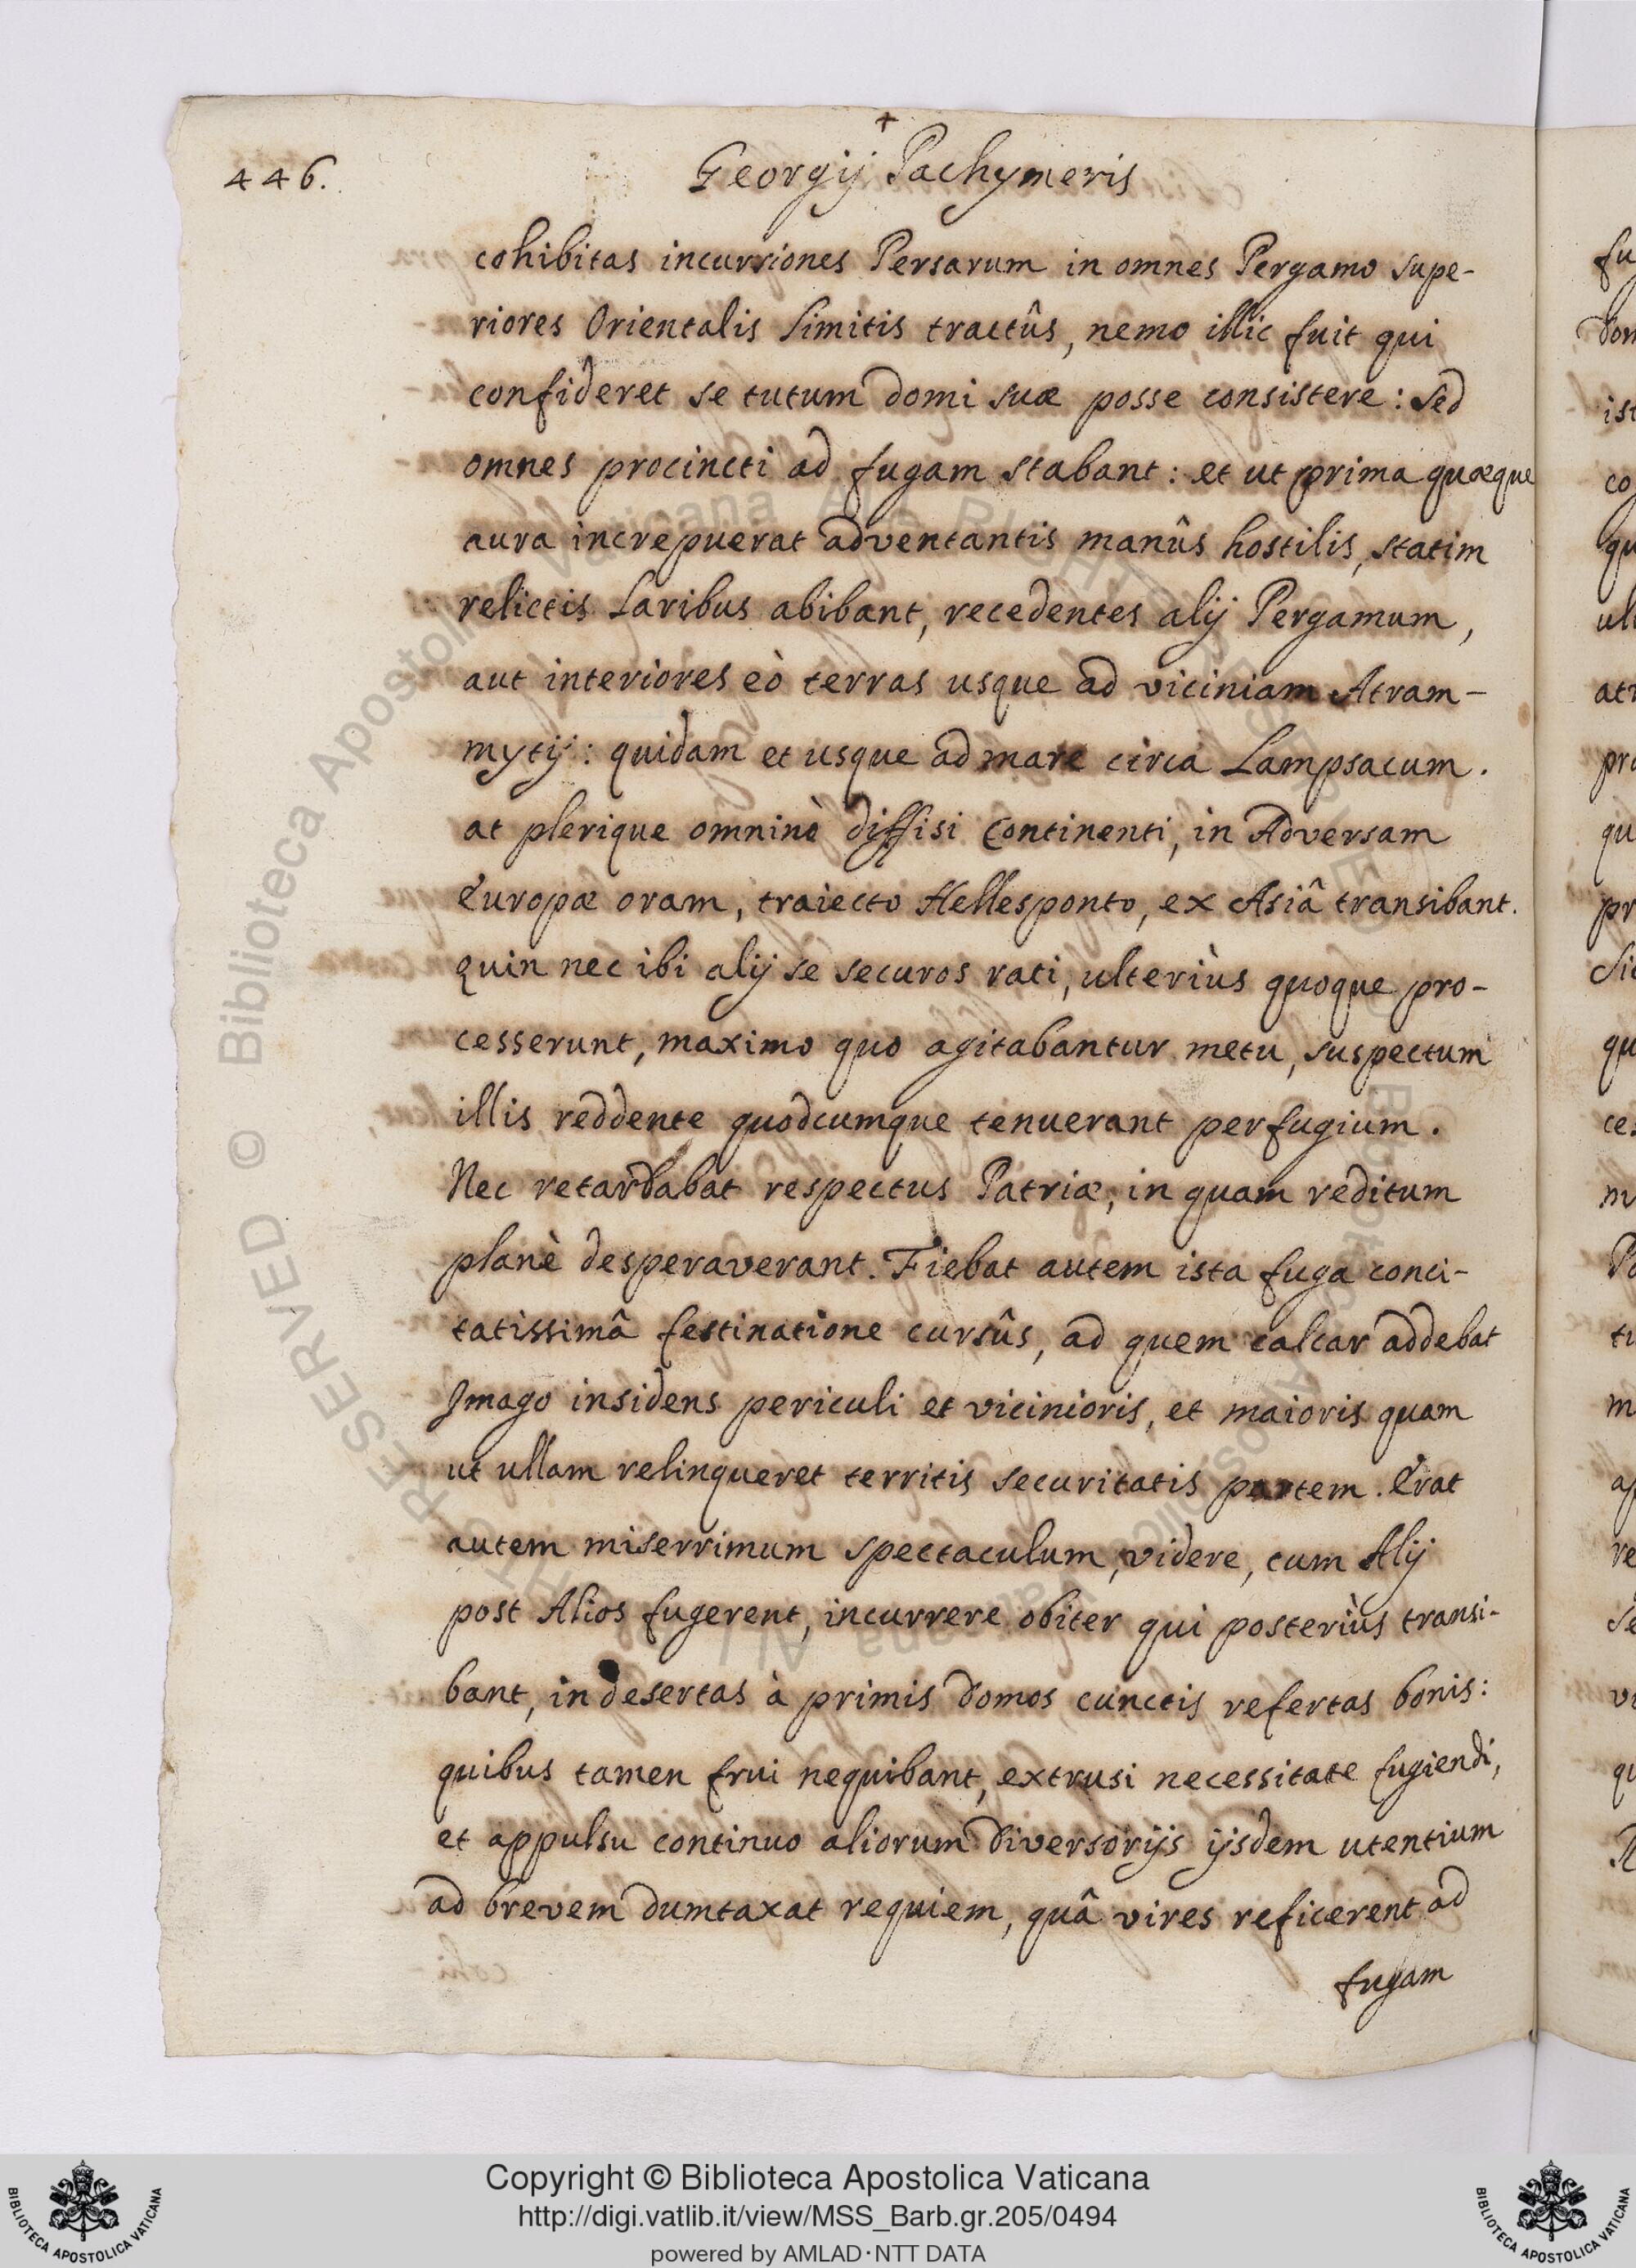 +
446.
Georgij Pachymeris
cohibitas incursiones Persarum in omnes Pergamo supe-
riores Orientalis limitis tractûs, nemo illic fuit qui
confideret se tutum domi suæ posse consistere: sed
omnes procincti ad fugam stabant: et ut prima quæque
aura increpuerat adventantis manûs hostilis, statim
relictis Laribus abibant, recedentes alij Pergamum,
aut interiores eò terras usque ad viciniam Atram-
mytij: quidam et usque ad mare circa Lampsacum.
at plerique omninò diffisi Continenti, in Adversam
Europæ oram, traiecto Hellesponto, ex Asiâ transibant.
quin nec ibi alij se securos rati, ulteriùs quoque pro-
cesserunt, maximo quo agitabantur metu, suspectum
illis reddente quodcumque tenuerant perfugium.
Nec retardabat respectus Patriæ, in quam reditum
planè desperaverant. Fiebat autem ista fuga conci-
tatissimâ festinatione cursûs, ad quem calcar addebat
Imago insidens periculi et vicinioris, et maioris quam
ut ullam relinqueret territis securitatis partem. Erat
autem miserrimum spectaculum, videre, cum Alij
post Alios fugerent, incurrere obiter qui posteriùs transi-
bant, in desertas à primis domos, cunctis refertas bonis:
quibus tamen frui nequibant, extrusi necessitate fugiendi,
et appulsu continuo aliorum diversorijs ijsdem utentium
ad brevem dumtaxat requiem, quâ vires reficerent ad
fugam
Copyright © Biblioteca Apostolica Vaticana
http://digi.vatlib.it/view/MSS_Barb.gr.205/0494
powered by AMLAD·NTT DATA
BIBLIOTECA APOSTOLICA VATICANA
BIBLIOTECA APOSTOLICA VATICANA